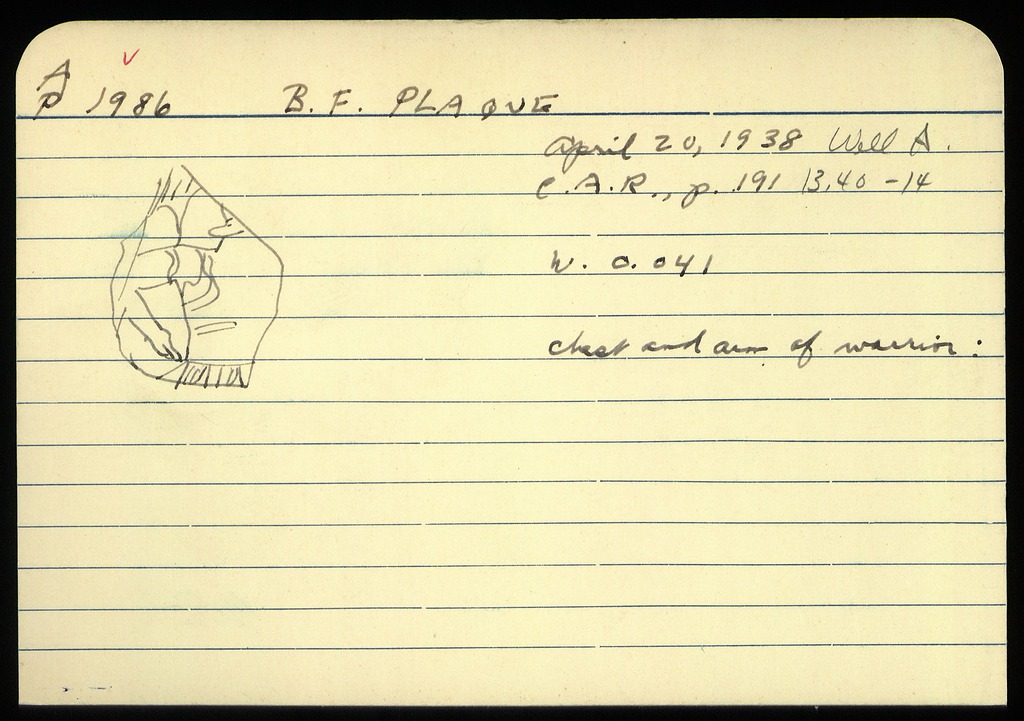 A
P 1986 B. F. PLAQUE
April 20, 1938 Well A.
C.A.R., p. 191 13.40 -14
W. 0.041
chest and arm of warrior: